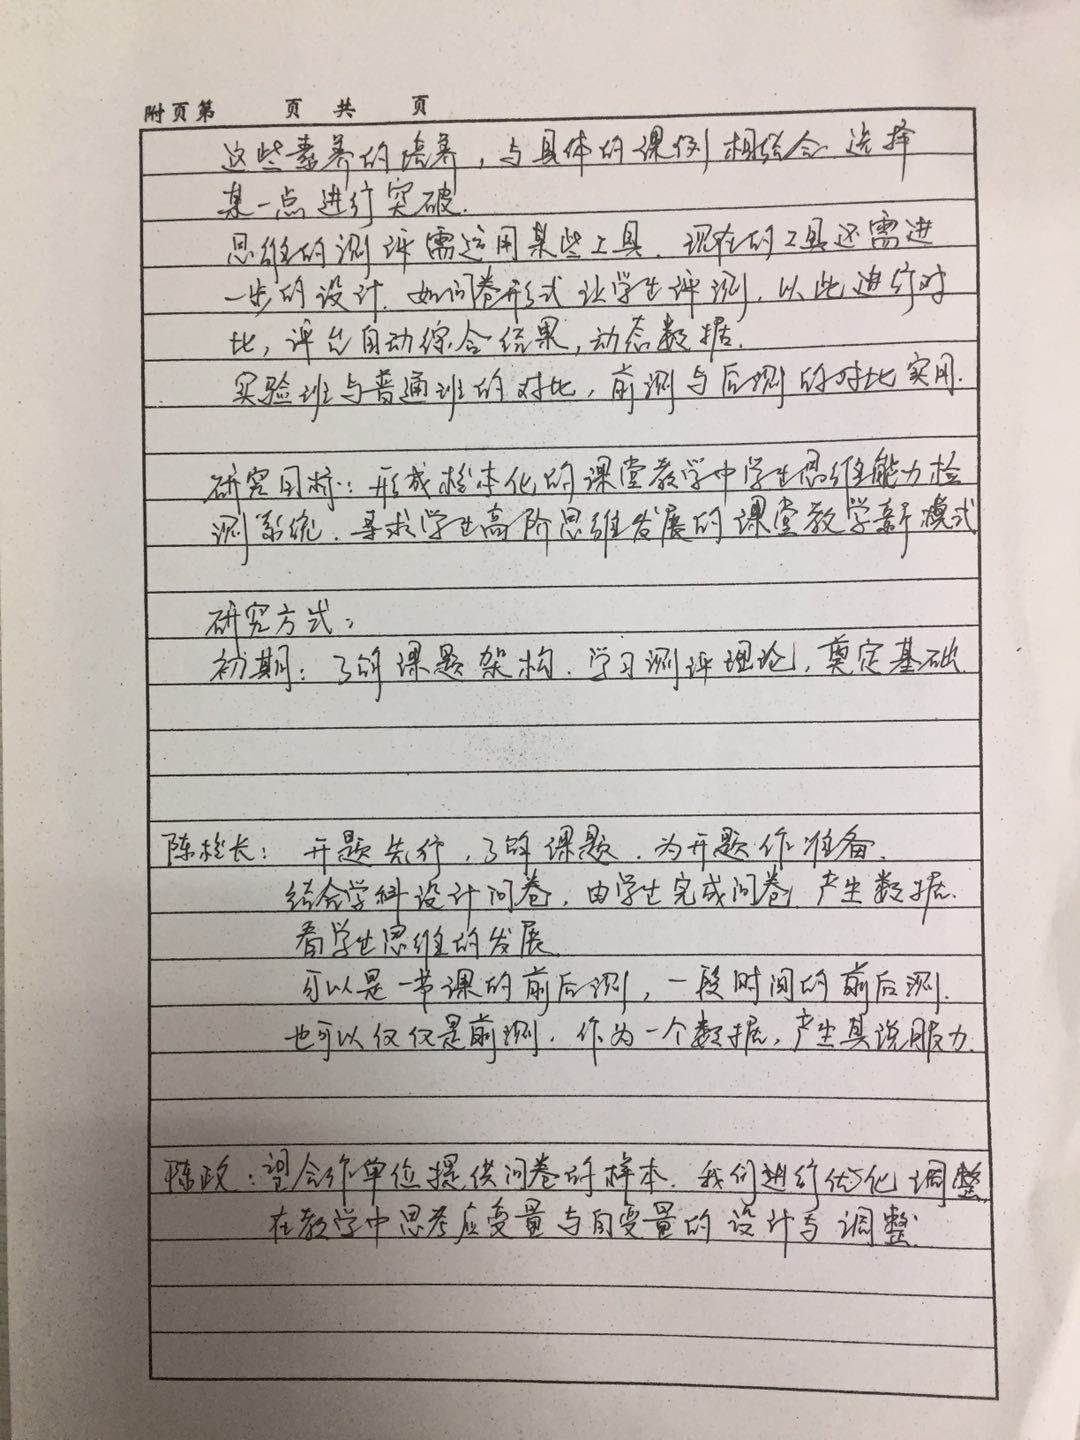 附页第 页 共 页
这些素养的培养，与具体的课例相结合 选择
某一点进行突破.
思维的测评需运用某些工具. 现在的工具还需进
一步的设计. 如问卷形式 让学生评测, 以此进行对
比, 评台自动综合结果, 动态数据.
实验班与普通班的对比, 前测与后测的对比实用.
研究目标: 形成校本化的课堂教学中学生思维能力检
测系统. 寻求学生高阶思维发展的课堂教学新模式
研究方式:
初期: 了解课题架构. 学习测评理论, 奠定基础.
陈校长: 开题先行, 了解课题. 为开题作准备.
结合学科设计问卷, 由学生完成问卷, 产生数据.
看学生思维的发展.
可以是一节课的前后测, 一段时间的前后测.
也可以仅仅是前测. 作为一个数据, 产生其说服力.
陈政: 望合作单位提供问卷的样本. 我们进行优化调整
在教学中思考应变量与自变量的设计与调整.